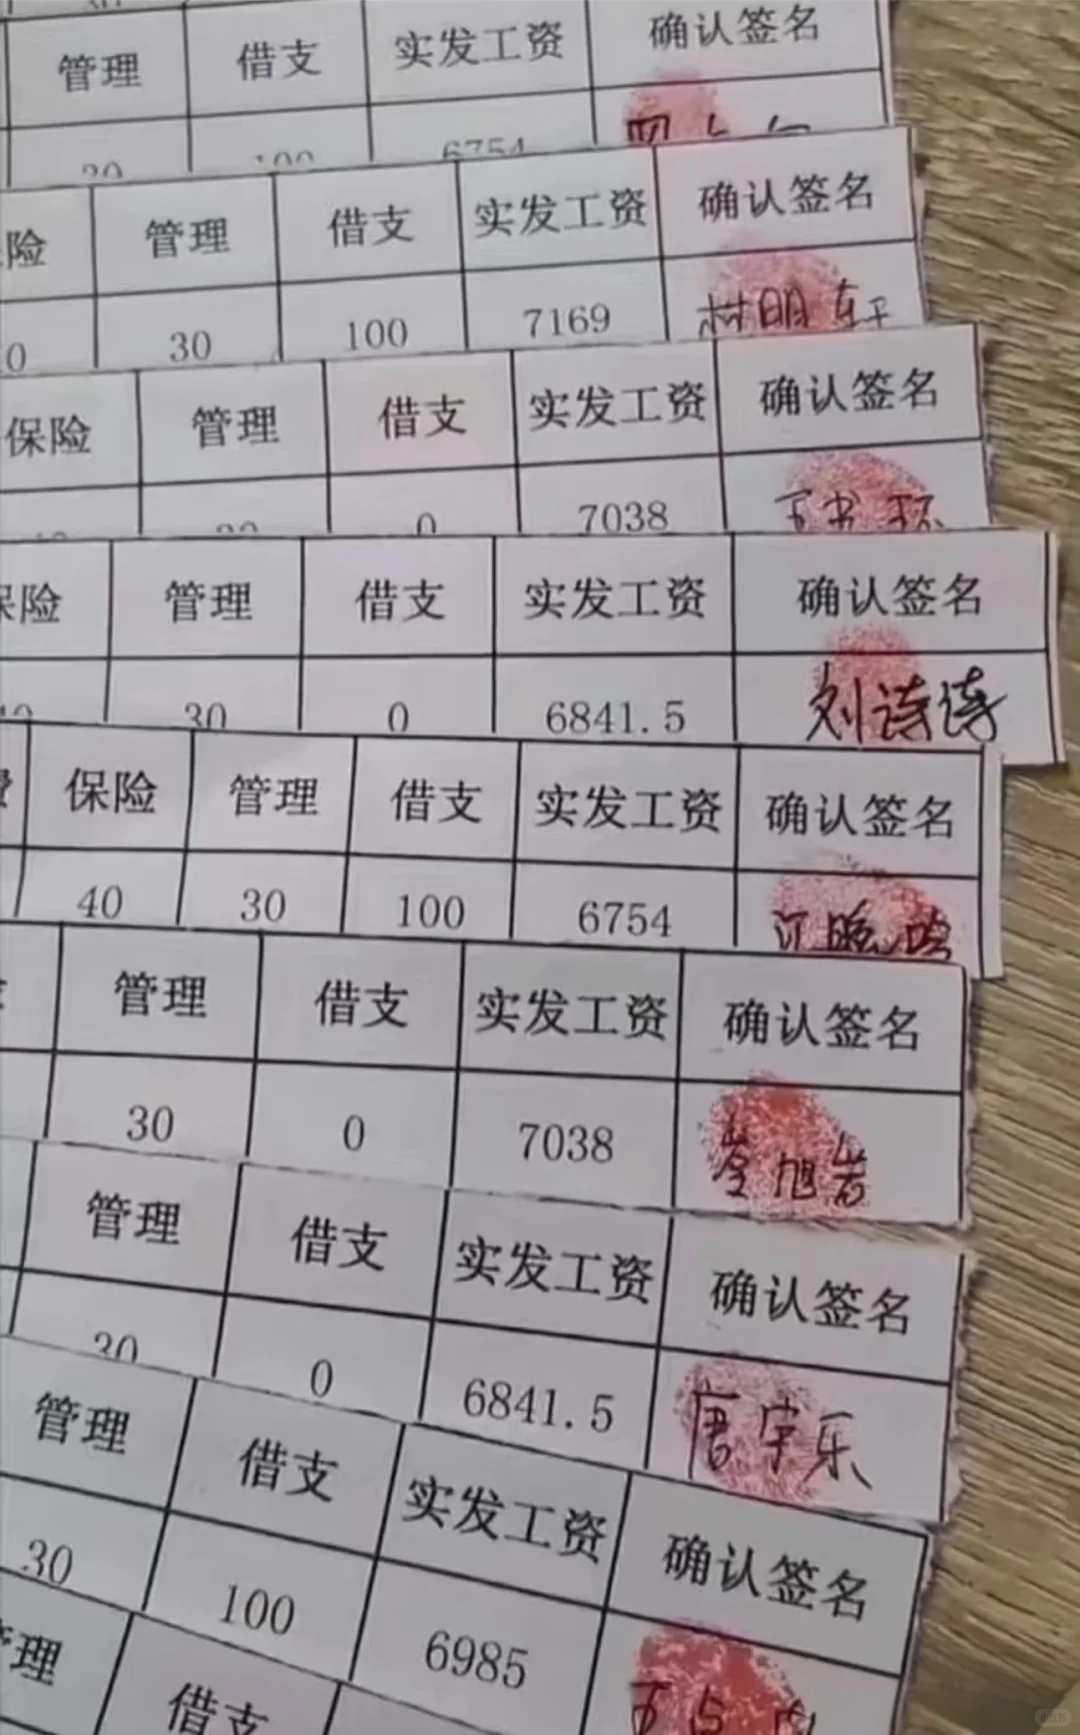 管理 借支 实发工资 确认签名
30 100 6754
险 管理 借支 实发工资 确认签名
0 30 100 7169 树明轩
保险 管理 借支 实发工资 确认签名
0 7038
保险 管理 借支 实发工资 确认签名
30 0 6841.5 刘诗诗
费 保险 管理 借支 实发工资 确认签名
40 30 100 6754
管理 借支 实发工资 确认签名
30 0 7038 岑旭岩
管理 借支 实发工资 确认签名
30 0 6841.5 唐宇乐
管理 借支 实发工资 确认签名
30 100 6985
管理 借支